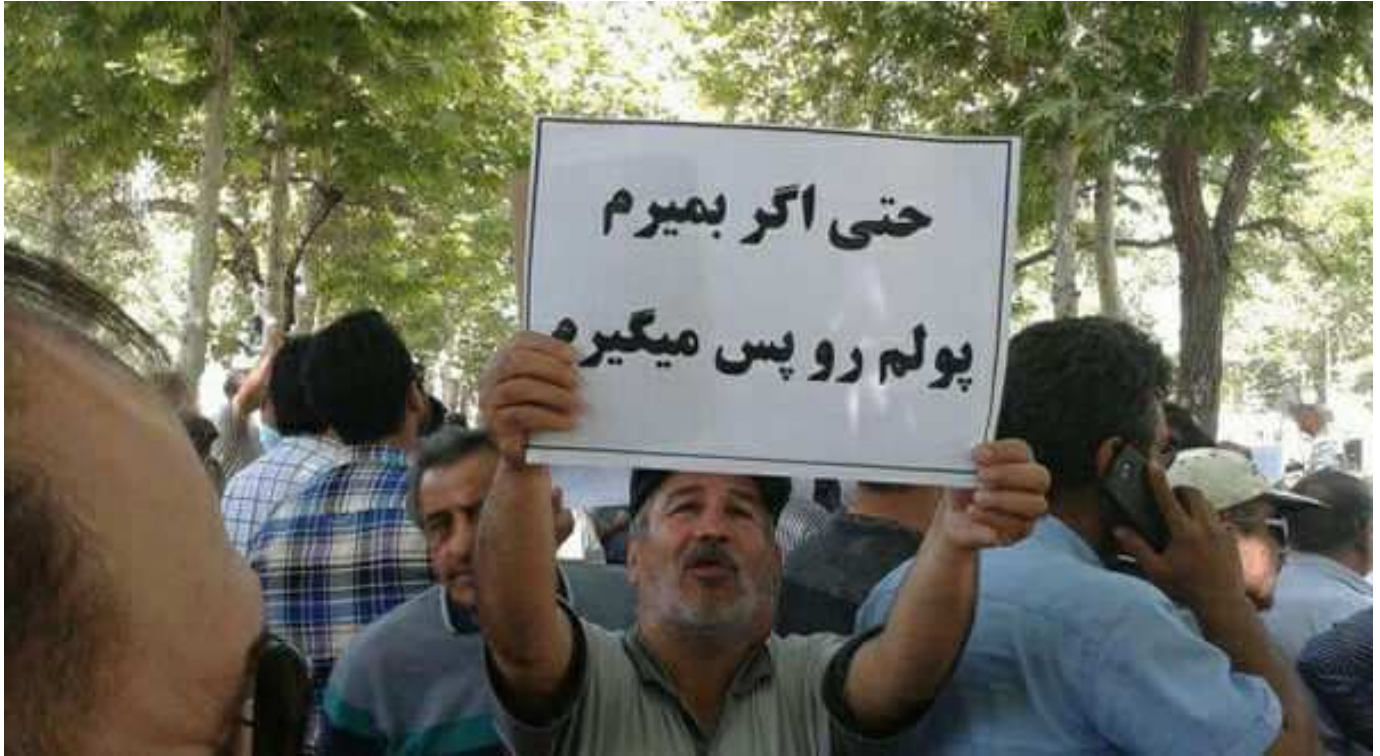 حتی اگر بمیرم
پولم رو پس میگیرم